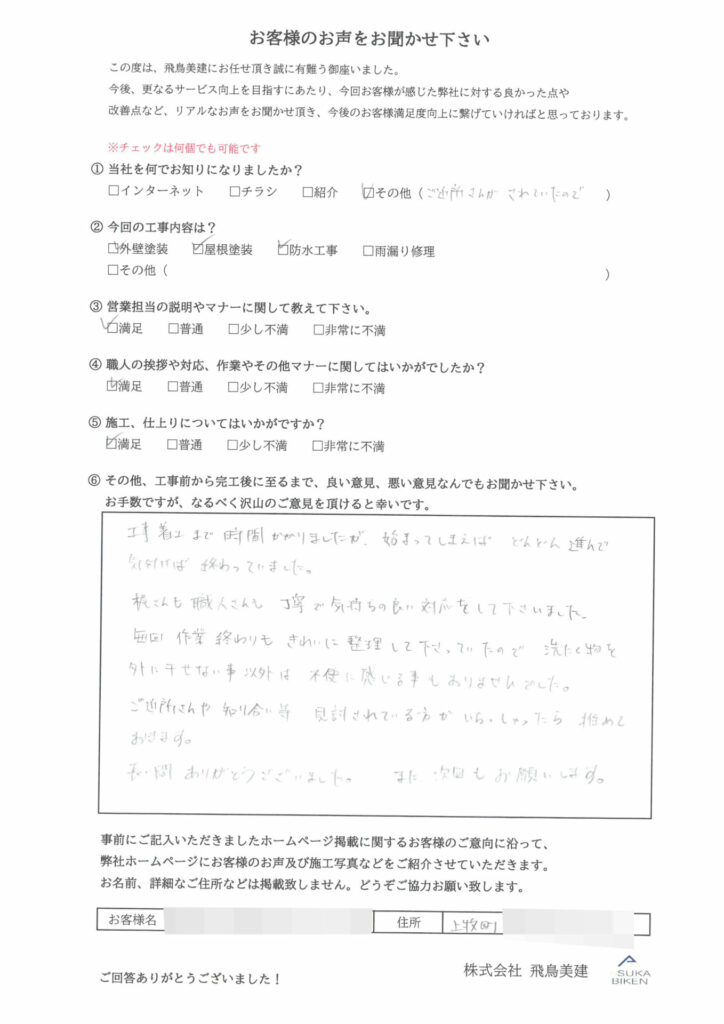 お客様のお声をお聞かせ下さい
この度は、飛鳥美建にお任せ頂き誠に有難う御座いました。
今後、更なるサービス向上を目指すにあたり、今回お客様が感じた弊社に対する良かった点や
改善点など、リアルなお声をお聞かせ頂き、今後のお客様満足度向上に繋げていければと思っております。
※チェックは何個でも可能です
① 当社を何でお知りになりましたか？
□インターネット □チラシ □紹介 ☑その他（ご近所さんが されていたので ）
② 今回の工事内容は？
☑外壁塗装 ☑屋根塗装 ☑防水工事 □雨漏り修理
□その他（ ）
③ 営業担当の説明やマナーに関して教えて下さい。
☑満足 □普通 □少し不満 □非常に不満
④ 職人の挨拶や対応、作業やその他マナーに関してはいかがでしたか？
☑満足 □普通 □少し不満 □非常に不満
⑤ 施工、仕上りについてはいかがですか？
☑満足 □普通 □少し不満 □非常に不満
⑥ その他、工事前から完工後に至るまで、良い意見、悪い意見なんでもお聞かせ下さい。
お手数ですが、なるべく沢山のご意見を頂けると幸いです。
工事着工まで 時間かかりましたが、始まってしまえば どんどん進んで
気付けば 終わっていました。
さんも 職人さんも 丁寧で気持ちの良い対応をして下さいました。
毎回 作業終わりも きれいに整理して下さっていたので 洗たく物を
外に干せない事以外は 不便に感じる事もありませんでした。
ご近所さんや 知り合い等 見討されている方が いらっしゃったら 推めて
おきます。
長い間 ありがとうございました。 また、次回も お願いします。
事前にご記入いただきましたホームページ掲載に関するお客様のご意向に沿って、
弊社ホームページにお客様のお声及び施工写真などをご紹介させていただきます。
お名前、詳細なご住所などは掲載致しません。どうぞご協力お願い致します。
お客様名 住所 上牧町
株式会社 飛鳥美建
ASUKA
BIKEN
ご回答ありがとうございました！